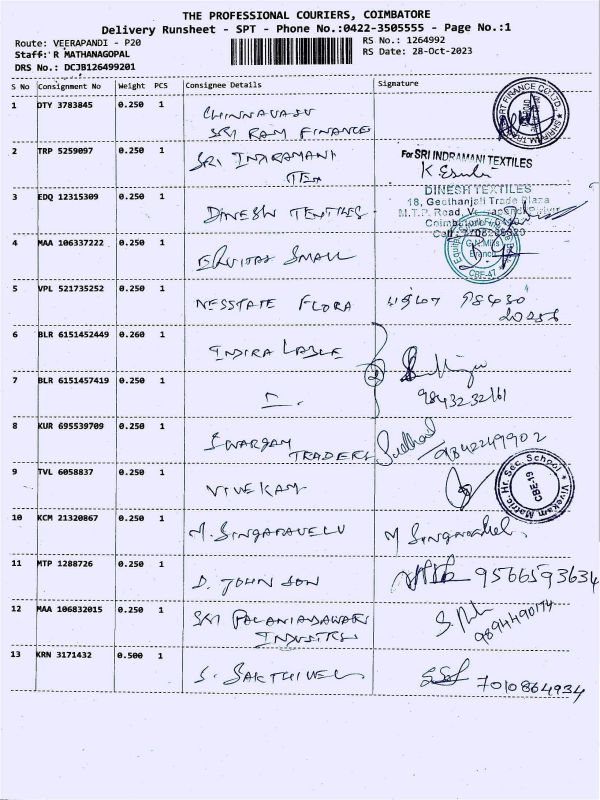 THE PROFESSIONAL COURIERS, COIMBATORE
Delivery Runsheet - SPT - Phone No.:0422-3505555 - Page No.:1
Route: VEERAPANDI - P20
RS No.: 1264992
Staff: R MATHANAGOPAL
RS Date: 28-Oct-2023
DRS No.: DCJB126499201
S No Consignment No Weight PCS Consignee Details Signature
1 DTY 3783845 0.250 1 CHINNAVASU
SRI RAM FINANCE
2 TRP 5259097 0.250 1 SRI INDRAMANI
TEX
For SRI INDRAMANI TEXTILES
3 EDQ 12315309 0.250 1 DINESH TEXTILES
DINESH TEXTILES
18, Geethanjali Trade Plaza
M.T.P. Road,
4 MAA 106337222 0.250 1 EQUITAS SMALL
CBE-47
5 VPL 521735252 0.250 1 NESSTATE FLORA
98430
6 BLR 6151452449 0.260 1 INDIRA LABLE
2
9843232161
7 BLR 6151457419 0.250 1
8 KUR 695539709 0.250 1 SWARGAM
TRADERS
9842249902
9 TVL 6058837 0.250 1 VIVEKAM
Vivekam Matric. Hr. Sec. School
CBE-19
10 KCM 21320867 0.250 1 M. SINGARAVELU M Singaravelu
11 MTP 1288726 0.250 1 D. JOHNSON 9566593634
12 MAA 106832015 0.250 1 SRI PALANIANDAWAR
INDUSTRY
9894490174
13 KRN 3171432 0.500 1 S. SAKTHIVEL
7010864934